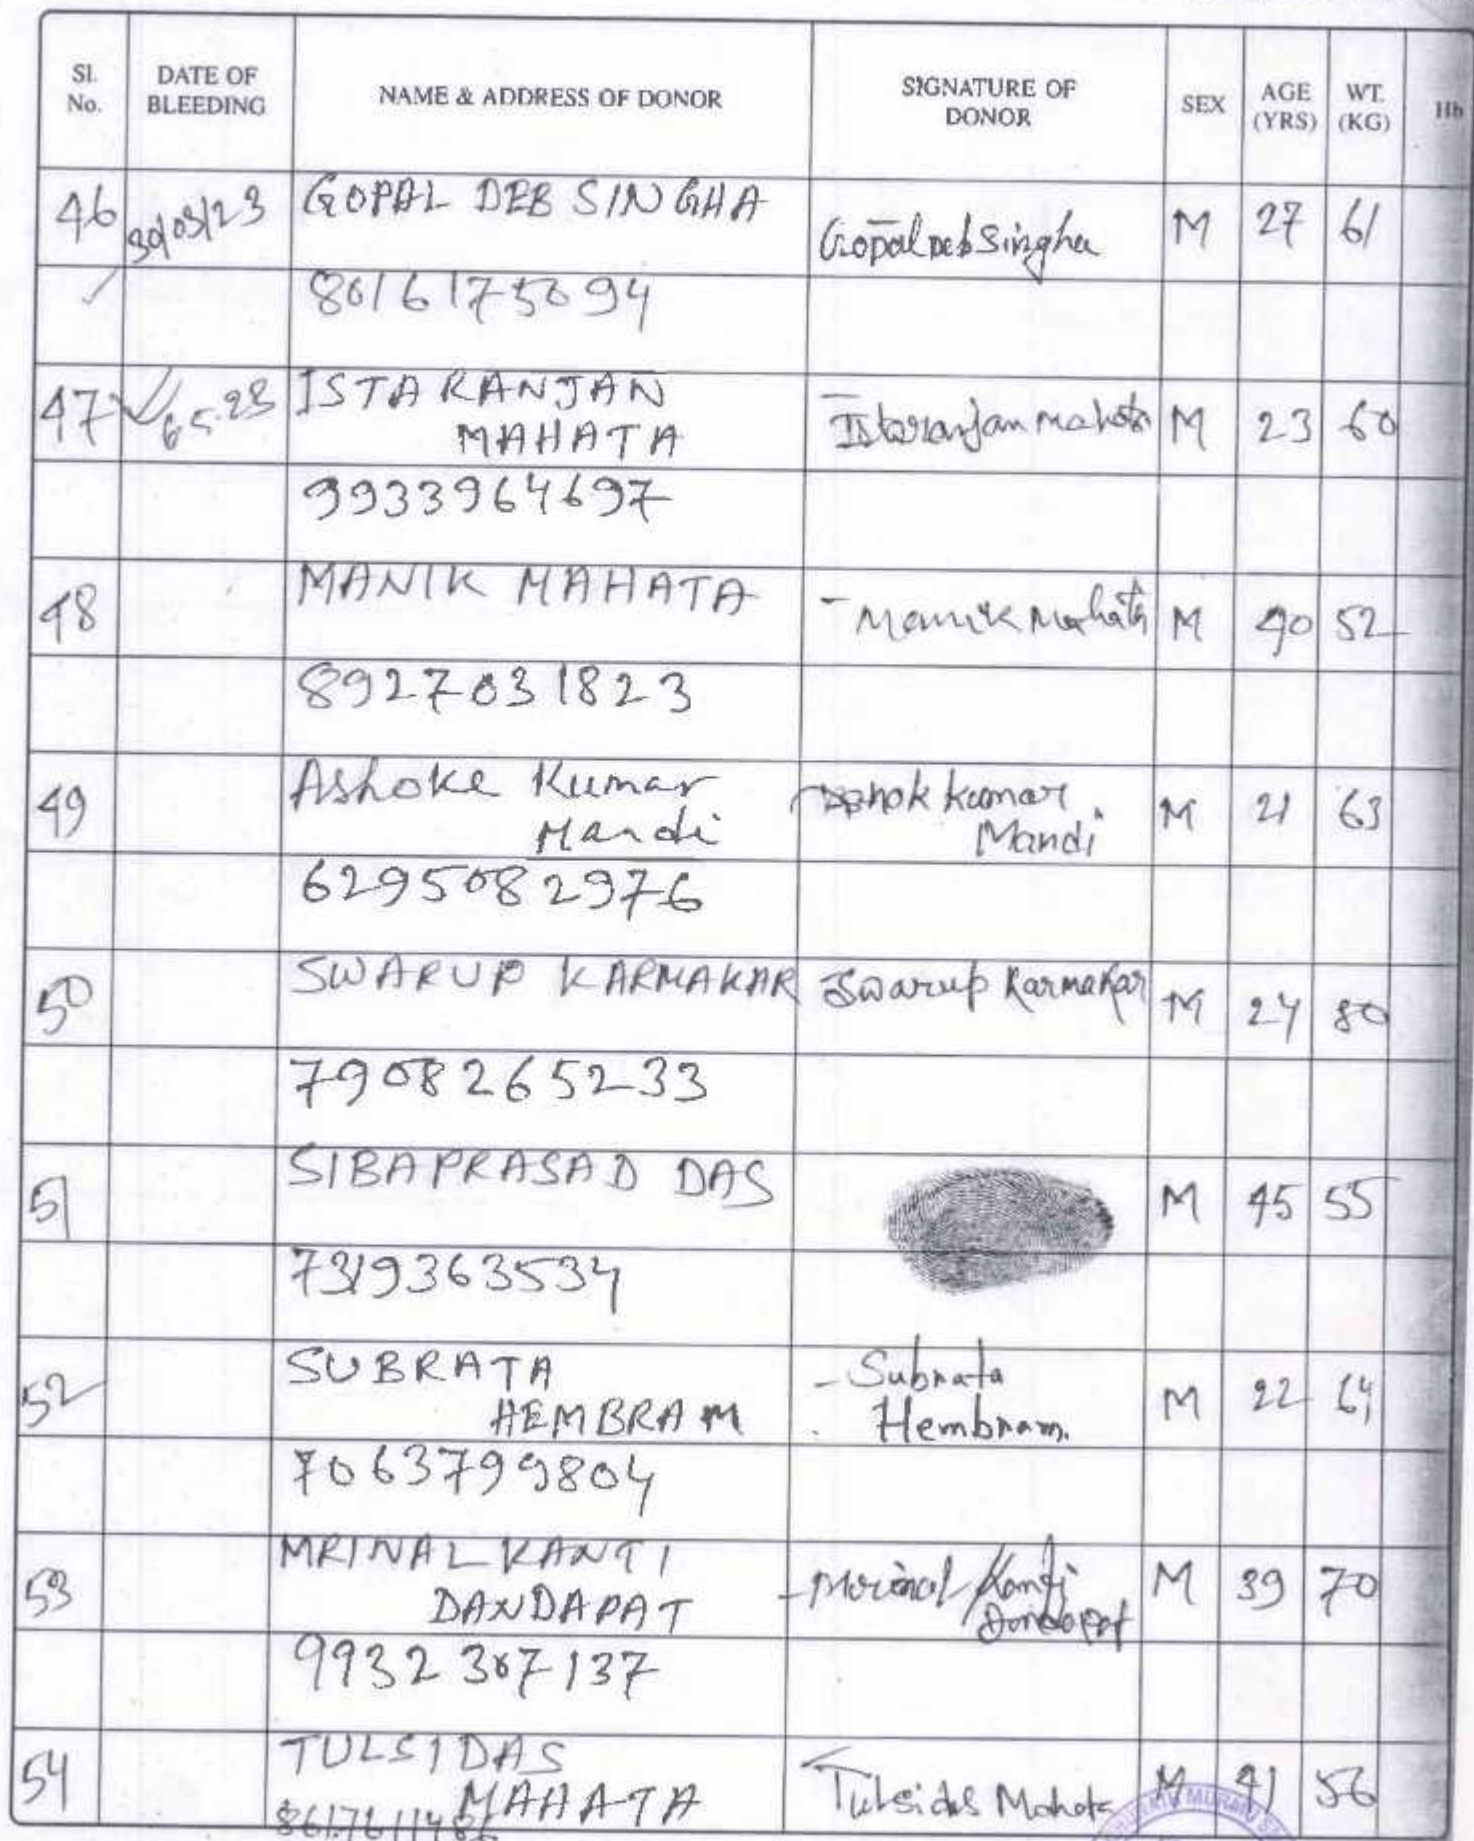 Sl. No. DATE OF BLEEDING NAME & ADDRESS OF DONOR SIGNATURE OF DONOR SEX AGE (YRS) WT. (KG) Hb
46 30/03/23 GOPAL DEB SINGHA Gopal Deb Singha M 27 61
8016175094
47 6.5.23 ISTARANJAN Istaranjan Mahata M 23 60
MAHATA
9933964697
48 MANIK MAHATA Manik Mahata M 40 52
8927031823
49 Ashoke Kumar Ashok Kumar M 21 63
Mandi Mandi
6295082976
50 SWARUP KARMAKAR Swarup Karmakar M 24 80
7908265233
51 SIBAPRASAD DAS M 45 55
7319363534
52 SUBRATA Subrata M 22 64
HEMBRAM Hembram.
7063799804
53 MRINAL KANTI Mrinal Kanti M 39 70
DANDAPAT Dandapat
9932307137
54 TULSIDAS Tulsidas Mahata M 41 56
MAHATA